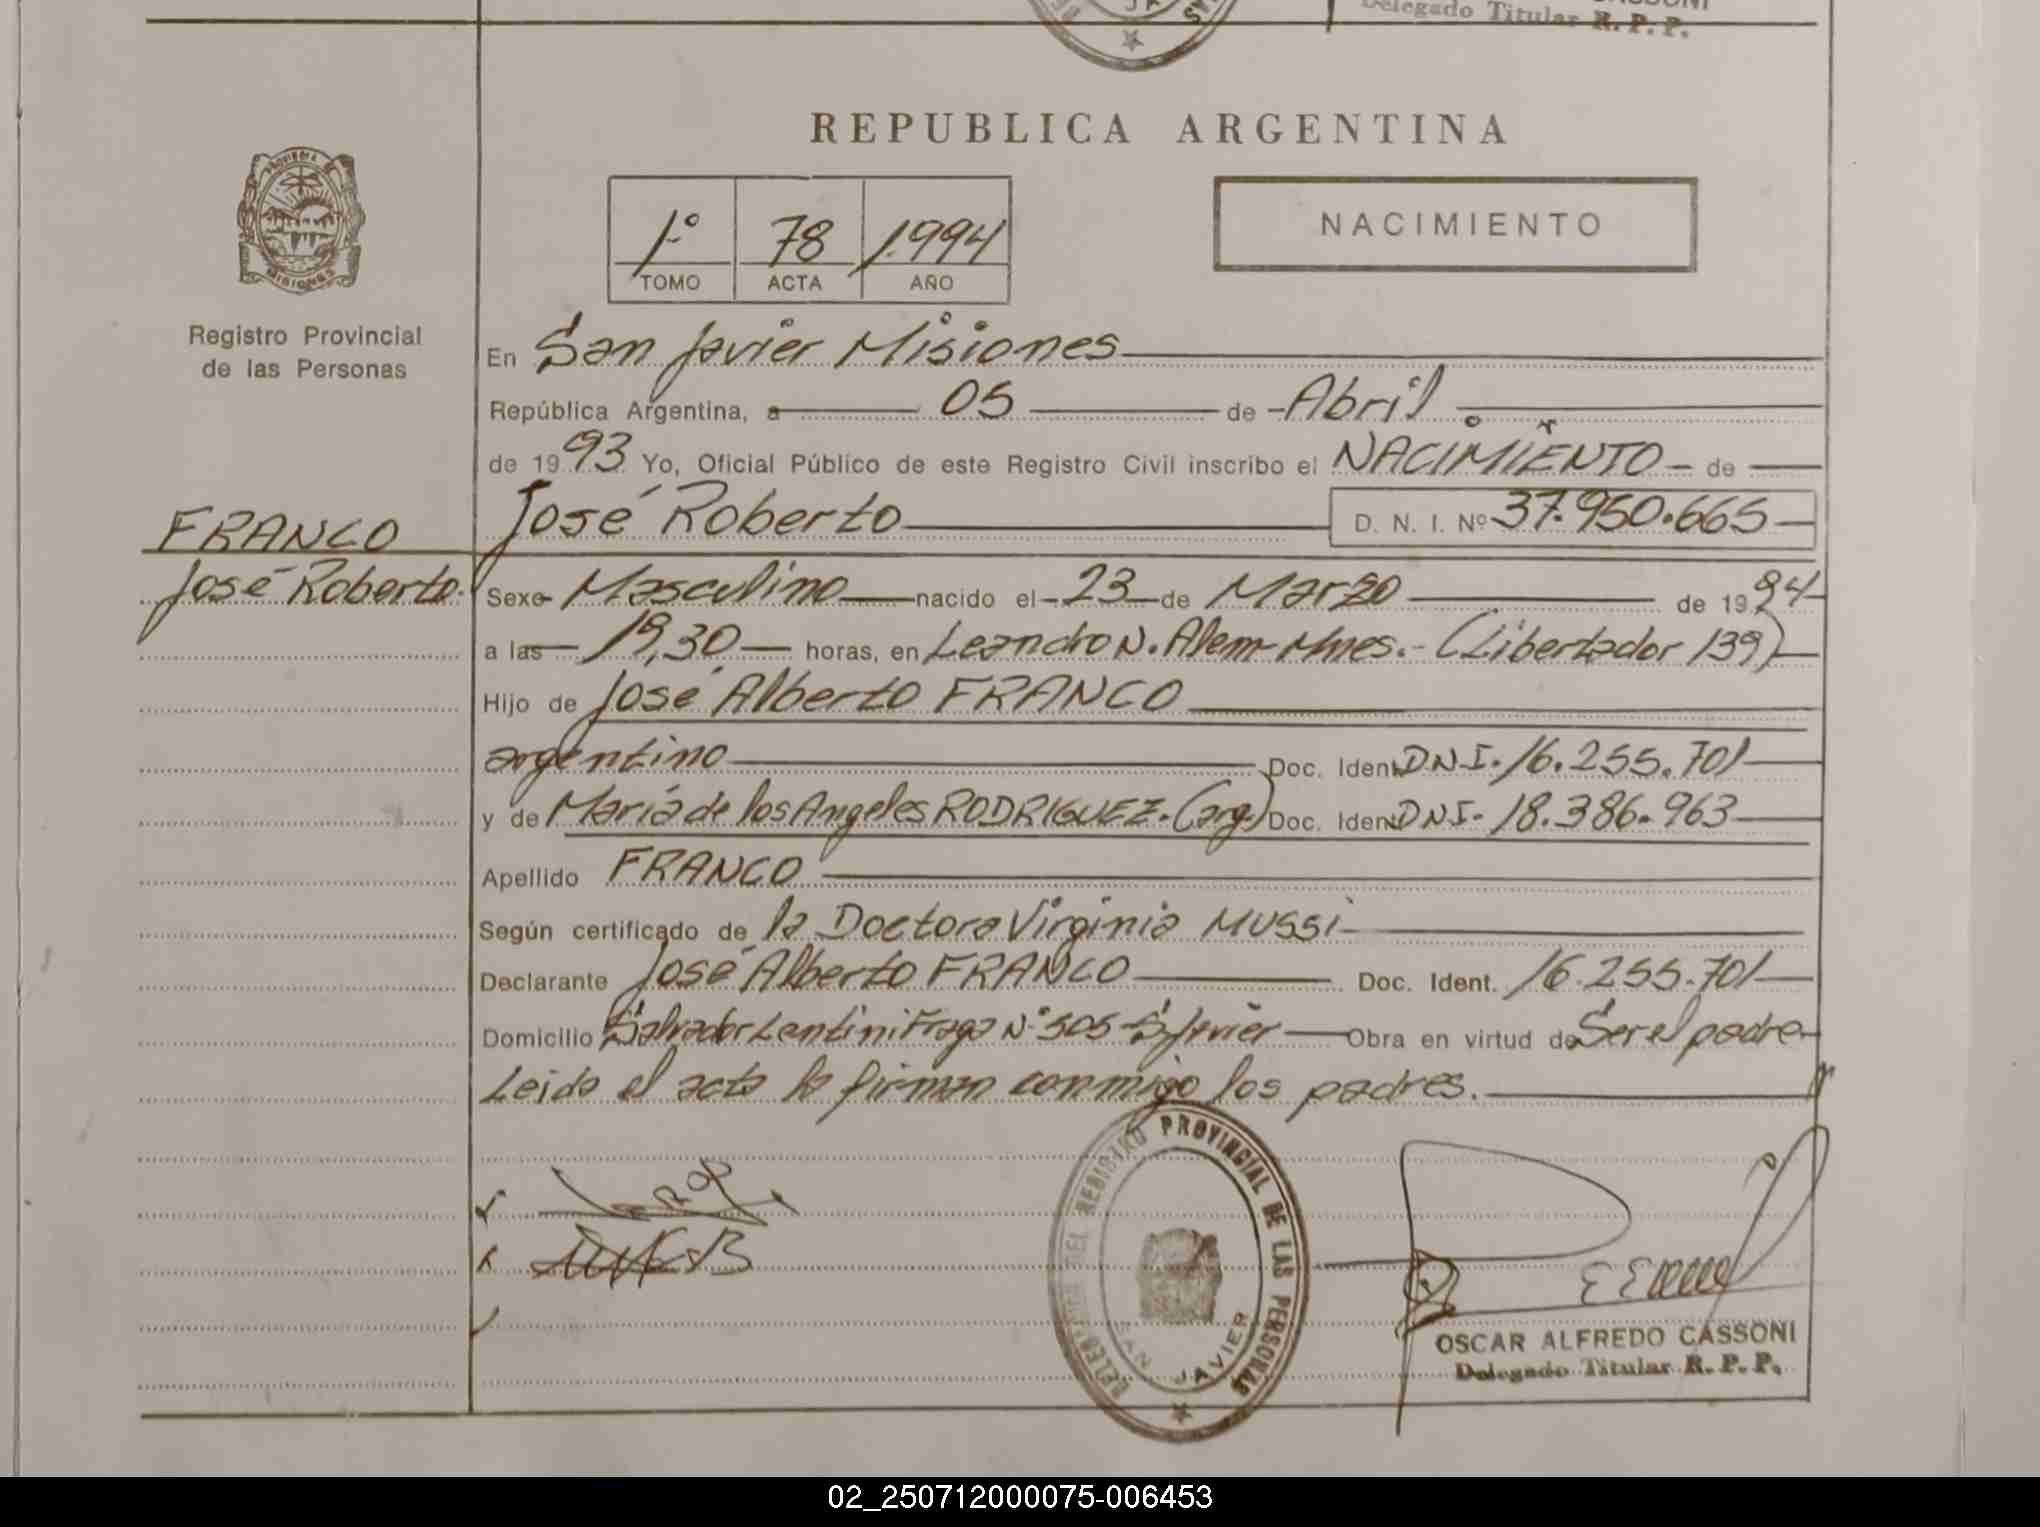 Delegado Titular R. P. P.
REPUBLICA ARGENTINA
1º 78 1.994
TOMO ACTA AÑO
NACIMIENTO
MISIONES
Registro Provincial
de las Personas
En San Javier Misiones
República Argentina, a 05 de Abril
de 1993 Yo, Oficial Público de este Registro Civil inscribo el NACIMIENTO de
FRANCO
José Roberto
José Roberto D. N. I. Nº 37.950.665
Sexo Masculino nacido el 23 de Marzo de 1994
a las 19,30 horas, en Leandro N. Alem Mnes.- (Libertador 139)
Hijo de José Alberto FRANCO
argentino Doc. Ident. DNI. 16.255.701
y de María de los Angeles RODRIGUEZ. (arg.) Doc. Ident. DNI. 18.386.963
Apellido FRANCO
Según certificado de la Doctora Virginia MUSSI
Declarante José Alberto FRANCO Doc. Ident. 16.255.701
Domicilio Salvador Lentini Fraga Nº 505 S/Javier Obra en virtud de Ser el padre
Leida el acta la firman conmigo los padres.
DELEGACION DEL REGISTRO PROVINCIAL DE LAS PERSONAS
SAN JAVIER
OSCAR ALFREDO CASSONI
Delegado Titular R. P. P.
02_250712000075-006453